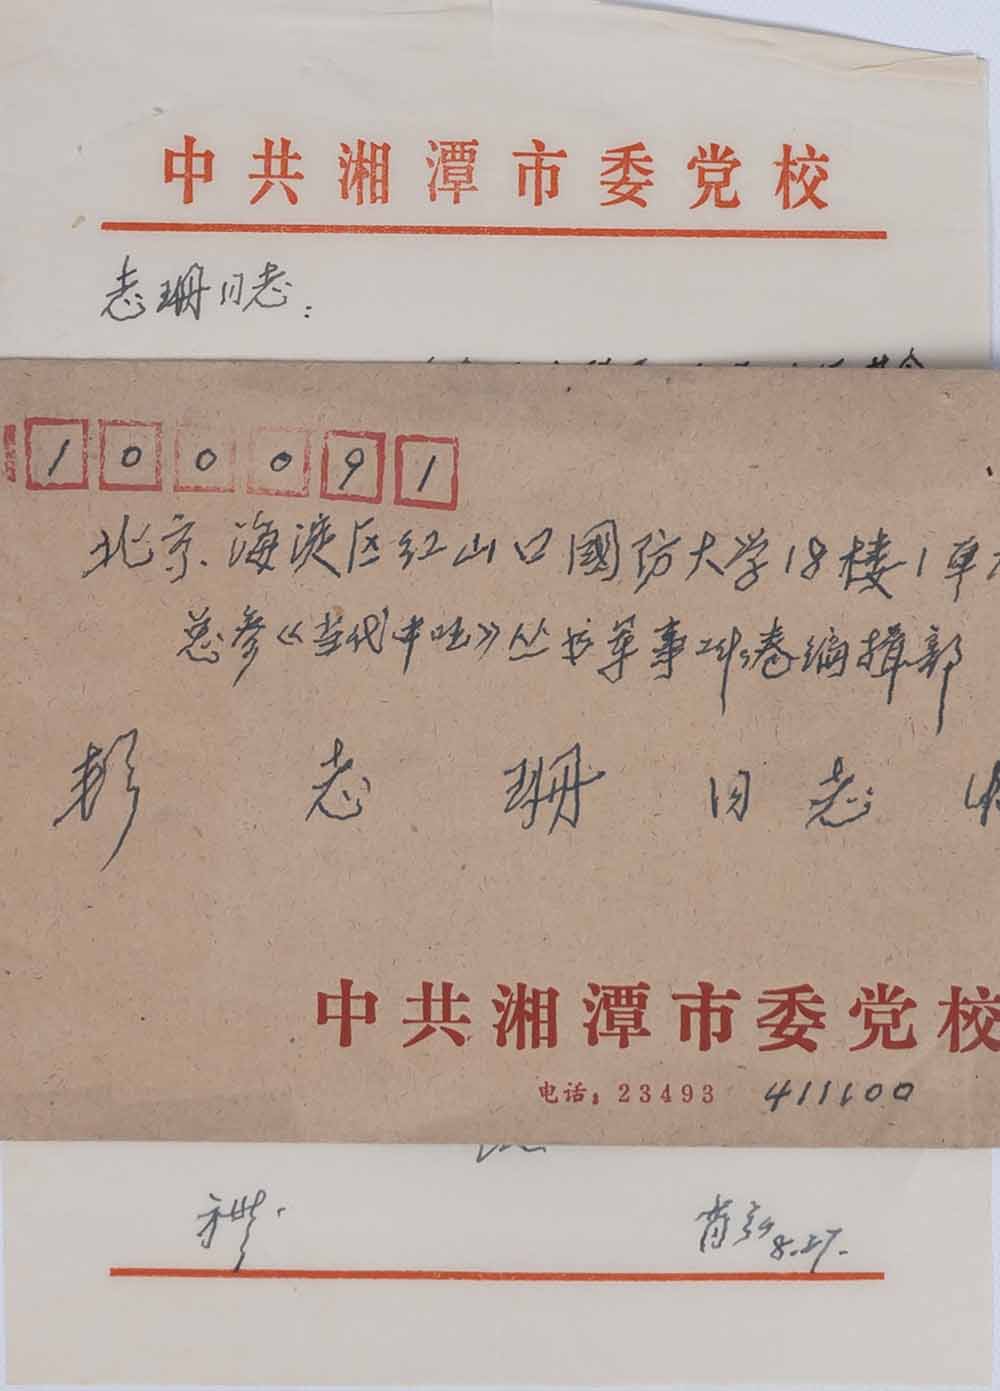 中共湘潭市委党校
志珊同志：
100091
北京.海淀区红山口國防大学18楼1单
总参《当代中国》丛书军事工作卷编辑部
彭志珊同志
中共湘潭市委党校
电话：23493 411100
8.27.